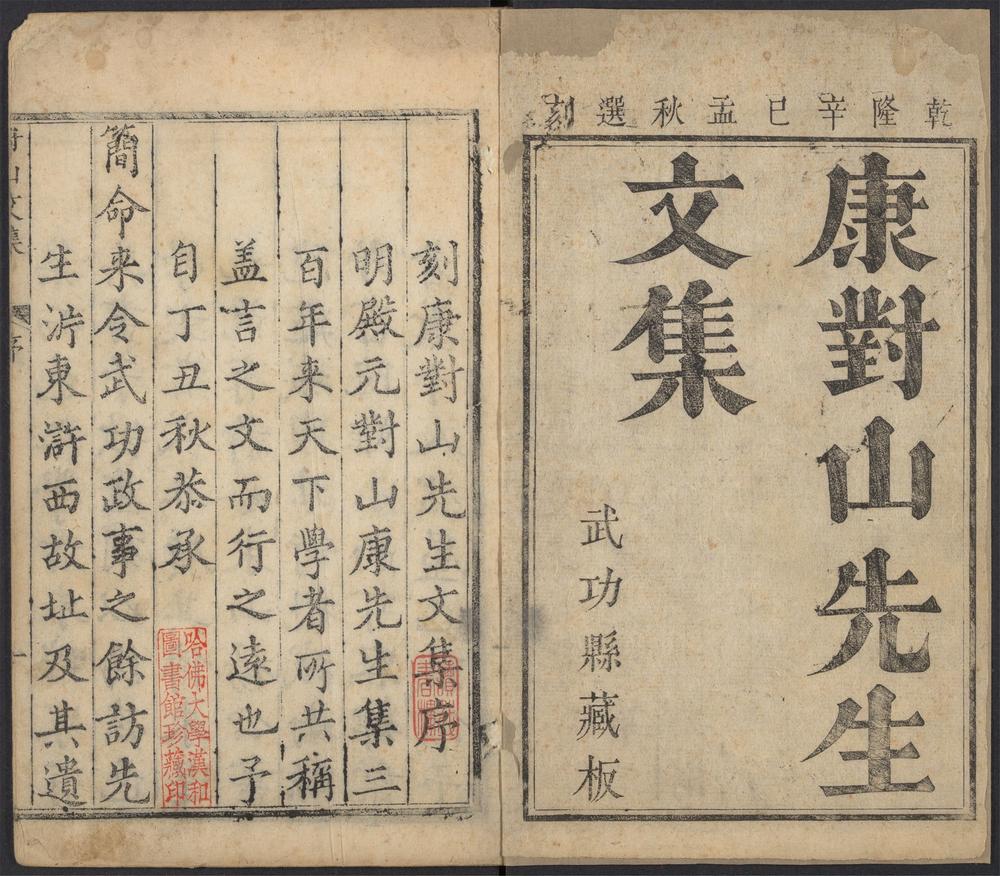 乾隆辛巳孟秋選刻
康對山先生
文集
武功縣藏板
刻康對山先生文集序
明殿元對山康先生集三
百年来天下學者所共稱
盖言之文而行之遠也予
自丁丑秋恭承
簡命来令武功政事之餘訪先
生浒東滸西故址及其遺
哈佛大學漢和
圖書館珍藏印